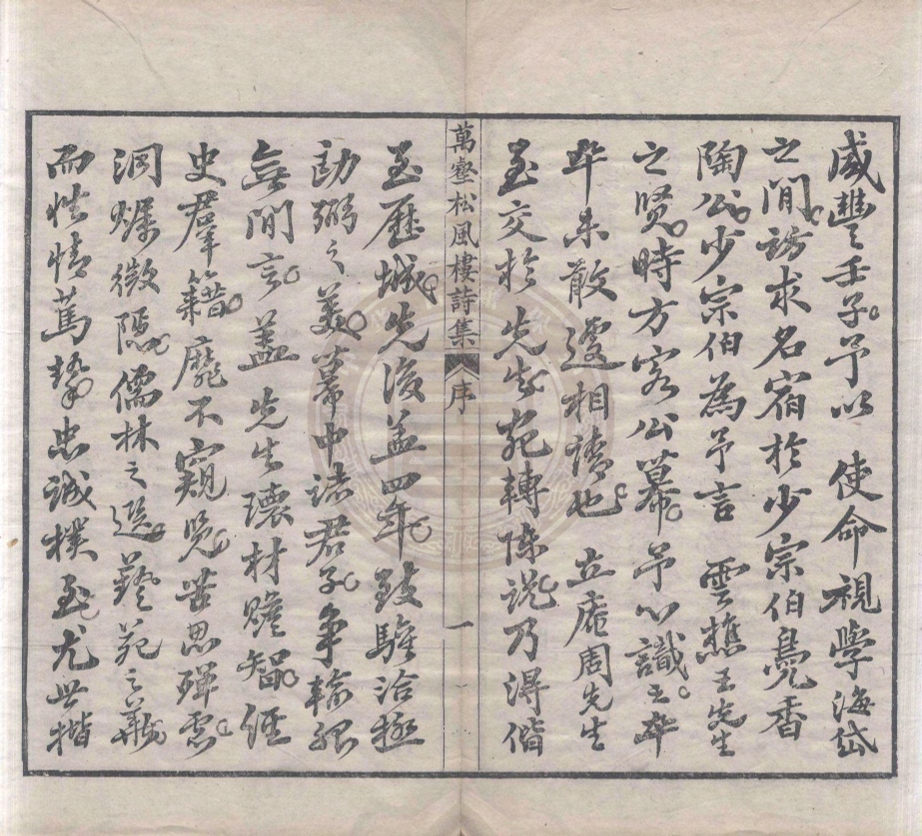 咸豐壬子。予以 使命視學海岱
之間。訪求名宿於少宗伯鳧香
陶公。少宗伯為予言 雲樵王先生
之賢。時方客公幕。予心識之。卒
卒未敢遽相請也。 立庵周先生
至交於先生宛轉陳說。乃得偕
萬壑松風樓詩集 序 一
至歷城。先後蓋四年。致驩洽極
劻弼之美。幕中諸君子。爭輸服
無間言。蓋先生瓌材贍智。經
史羣籍。靡不窺覽。苦思殫慮。
洞矚微隱。儒林之選。藝苑之
而性情篤摯。忠誠樸至。尤世楷